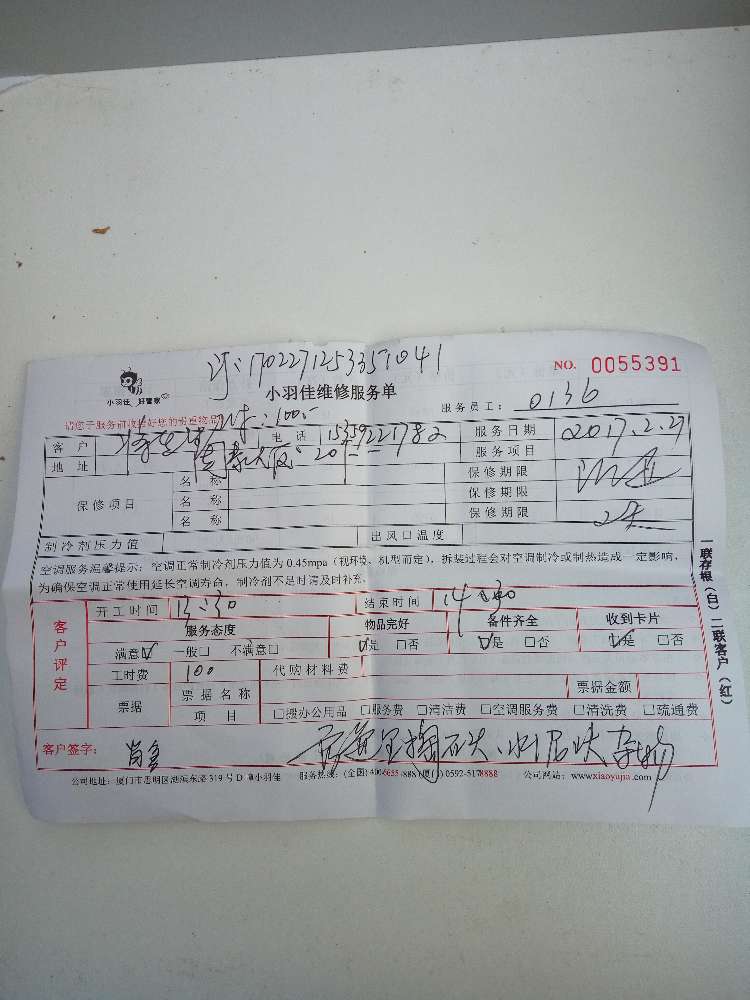 订:1702271253351041
NO. 0055391
小羽佳 好管家
小羽佳维修服务单
服务员工: 0136
请您于服务前收拾好您的贵重物品
客户 电话 服务日期 2017.2.27
地址 服务项目
保修项目 名称 保修期限
名称 保修期限
名称 保修期限
制冷剂压力值 出风口温度
空调服务温馨提示:空调正常制冷剂压力值为0.45mpa(视环境、机型而定),拆装过程会对空调制冷或制热造成一定影响,
为确保空调正常使用延长空调寿命,制冷剂不足时请及时补充。
客户评定
开工时间 13:30 结束时间 14:30
服务态度 物品完好 备件齐全 收到卡片
满意☑ 一般□ 不满意□ ☑是 □否 ☑是 □否 ☑是 □否
工时费 100 代购材料费
票据 票据名称 票据金额
项目 □拨办公用品 □服务费 □清洁费 □空调服务费 □清洗费 □疏通费
客户签字:
公司地址:厦门市思明区湖滨东路319号D 小羽佳 服务热线:(全国)400-6655-888(厦门)0592-5178888 公司网站:www.xiaoyujia.com
一联存根(白)二联客户(红)